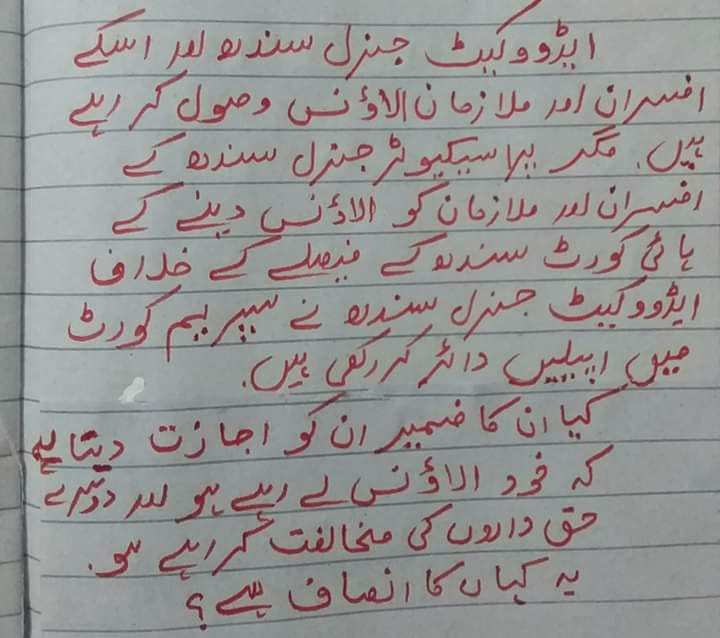 ایڈووکیٹ جنرل سندھ اور اسکے
افسران اور ملازمان الاؤنس وصول کر رہے
ہیں. مگر پراسیکیوٹر جنرل سندھ کے
افسران اور ملازمان کو الاؤنس دینے کے
ہائی کورٹ سندھ کے فیصلے کے خلاف
ایڈووکیٹ جنرل سندھ نے سپریم کورٹ
میں اپیلیں دائر کر رکھی ہیں.
کیا ان کا ضمیر ان کو اجازت دیتا ہے
کہ خود الاؤنس لے رہے ہو اور دوسرے
حق داروں کی مخالفت کر رہے ہو.
یہ کہاں کا انصاف ہے؟